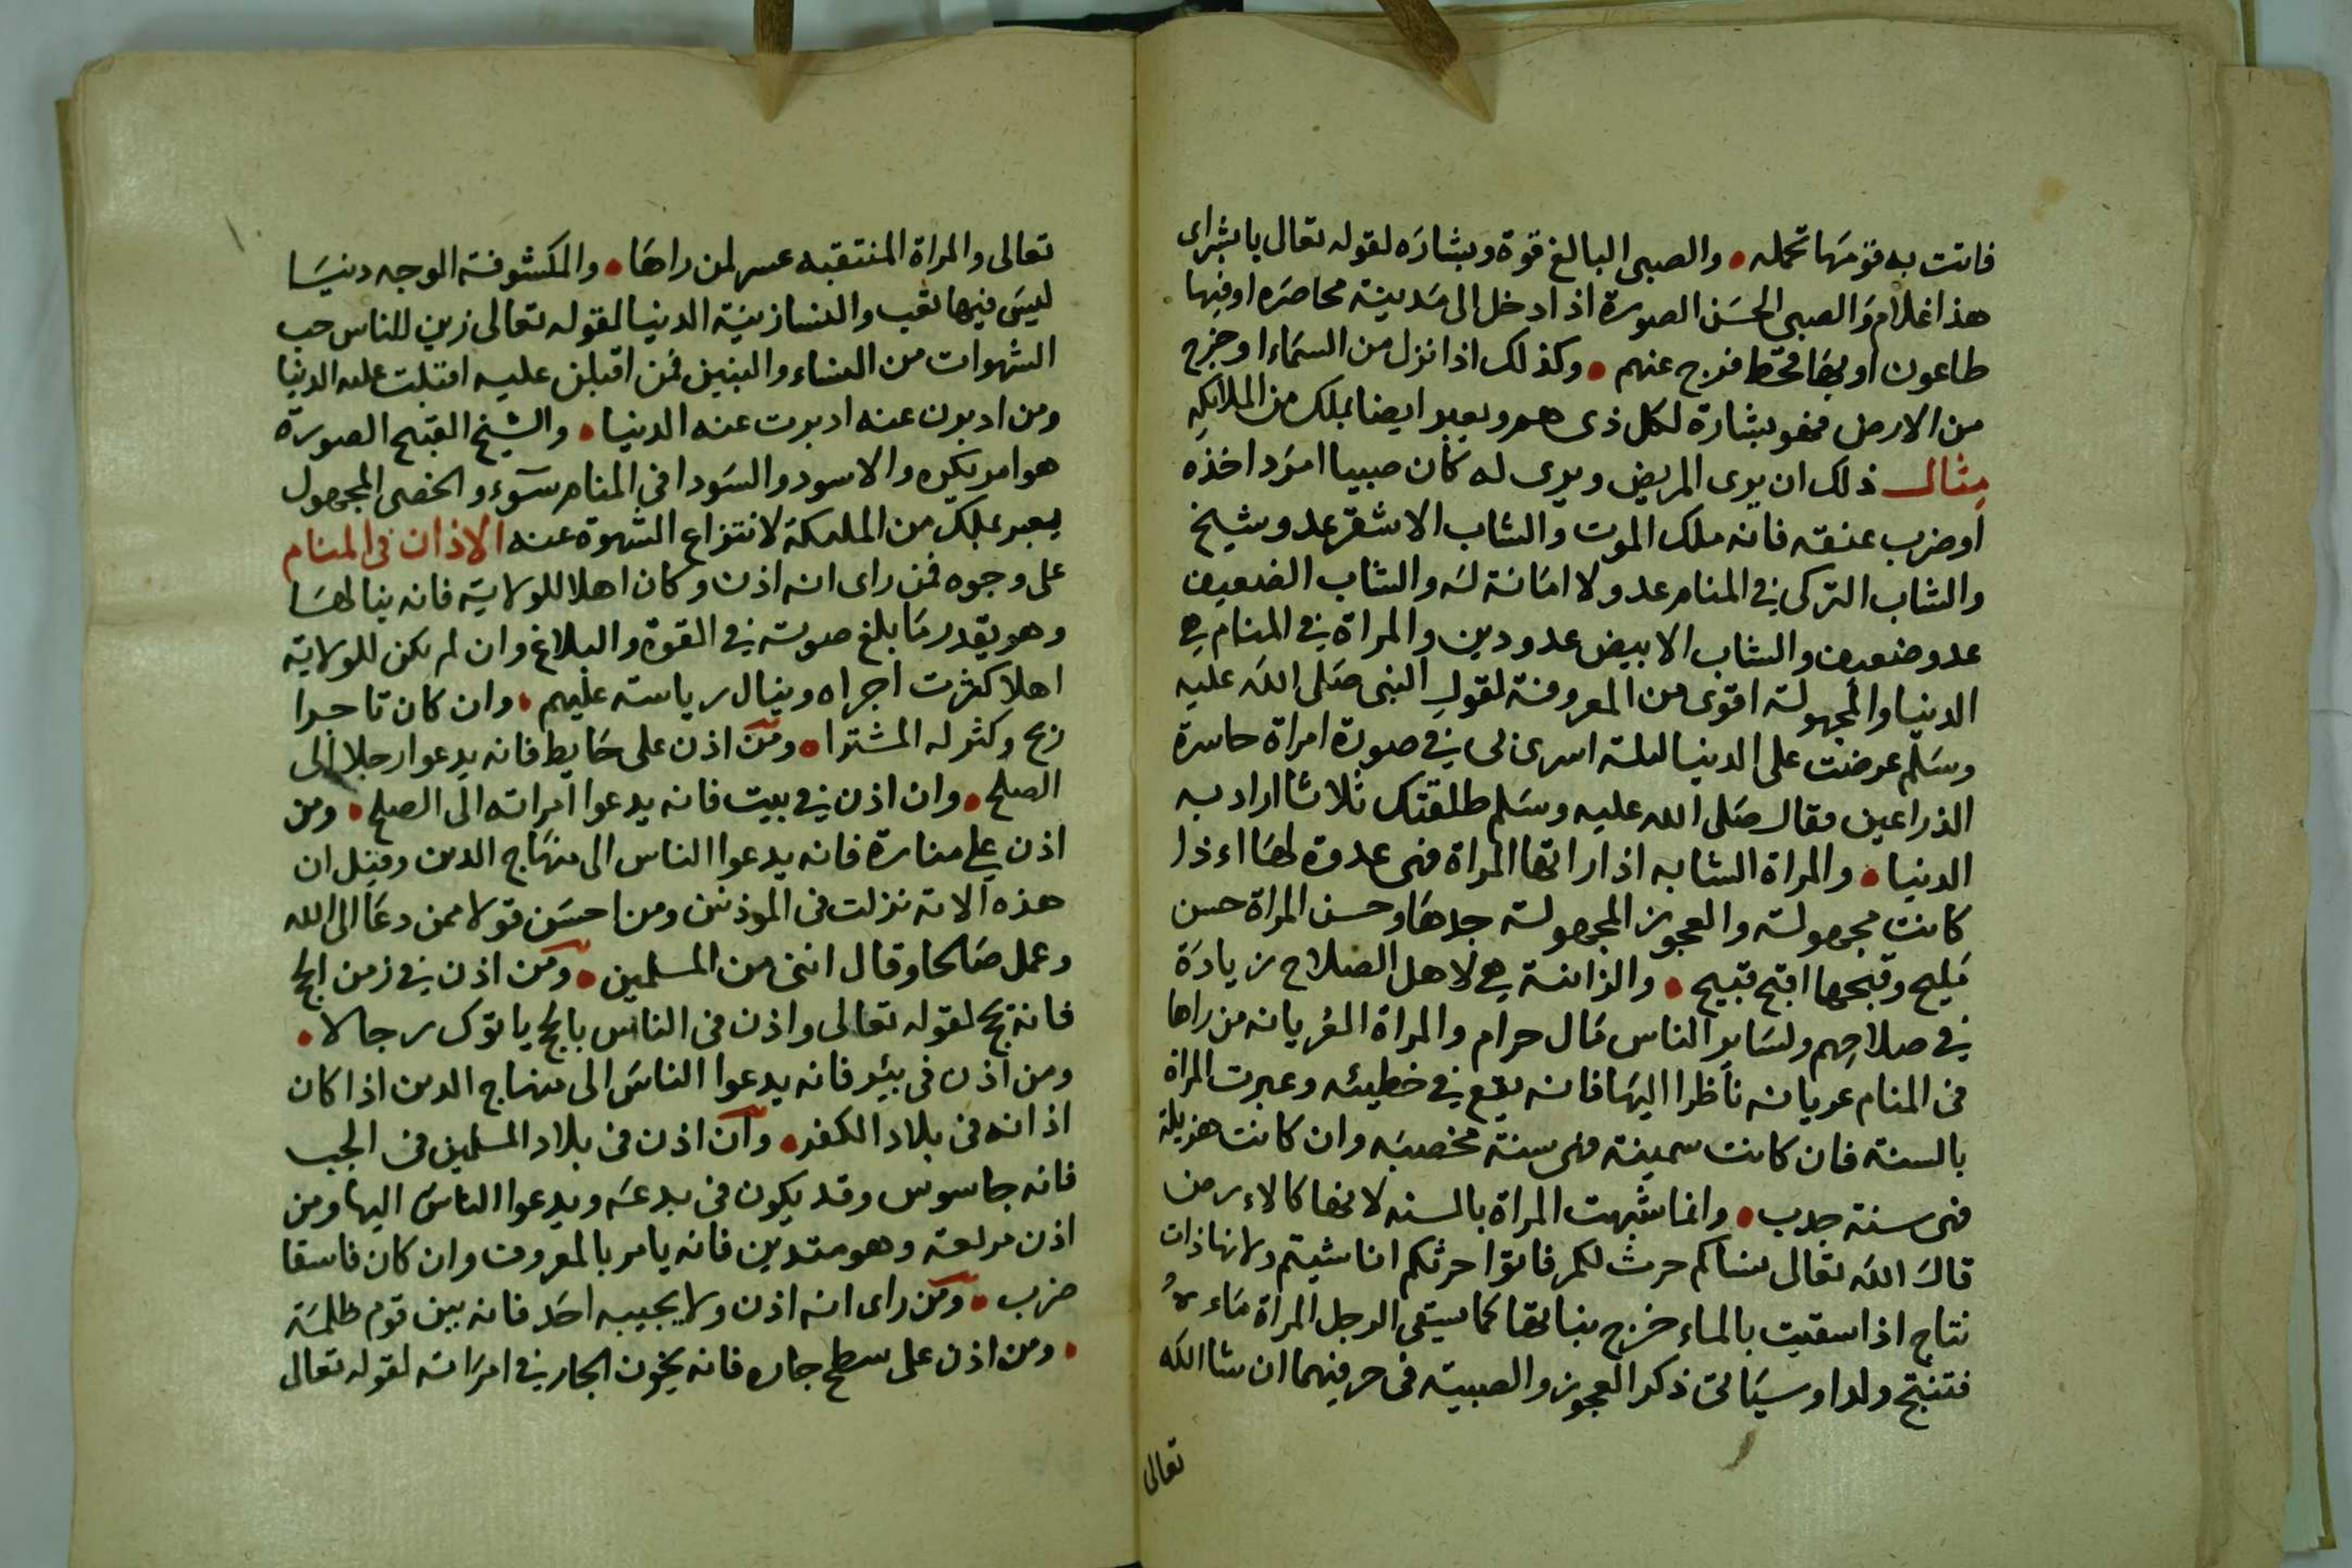 فاتت به قومها تحمله • والصبى البالغ قوة وبشاره لقوله تعالى يا بشراى
هذا غلام والصبى الحسن الصورة اذا دخل الى مدينة محاصره او فيها
طاعون او بها قحط فرج عنهم • وكذلك اذا نزل من السماء او خرج
من الارض فهو بشارة لكل ذى هم ويعبر ايضا بملك من الملائكه
مثال ذلك ان يرى المريض ويرى له كان صبيا امرد اخذه
او ضرب عنقه فانه ملك الموت والشاب الاشقر عدو شيخ
والشاب التركى فى المنام عدو لا امانة له والشاب الضعيف
عدو ضعيف والشاب الابيض عدو دين والمراة فى المنام هى
الدنيا والمجهولة اقوى من المعروفة لقول النبى صلى الله عليه
وسلم عرضت على الدنيا ليلة اسرى بى فى صورة امراة حاسرة
الذراعين فقال صلى الله عليه وسلم طلقتك ثلاثا اراد به
الدنيا • والمراة الشابه اذا راتها المراة فهى عدوة لها اء ذا
كانت مجهولة والعجوز المجهولة جدها وحسن المراة حسن
مليح وقبحها اقبح قبيح • والزانية هى لاهل الصلاح زيادة
فى صلاحهم ولساير الناس مال حرام والمراة العريانه من راها
فى المنام عريانه ناظرا اليها فانه يقع فى خطيئه وعبرت المراة
بالسنة فان كانت سمينة فهى سنة مخصبه وان كانت هزيلة
فهى سنة جدب • وانما شبهت المراة بالسنه لانها كالاءرض
قال الله تعالى نساكم حرث لكم فاتوا حرثكم انا شيتم ولانها ذات
نتاج اذا سقيت بالماء خرج نباتها كما سيقى الرجل المراة ماءه
فتنتج ولدا وسياتى ذكر العجوز والصبية فى حرفيهما ان شا الله
تعالى
تعالى والمراة المنتقبه عسر لمن راها • والمكشوفة الوجه دنيا
ليس فيها تعب والنسا زينة الدنيا لقوله تعالى زين للناس حب
الشهوات من النساء والبنين فمن اقبلن عليه اقبلت عليه الدنيا
ومن ادبرن عنه ادبرت عنه الدنيا • والشيخ القبيح الصورة
هو امر يكره والاسود والسودا فى المنام سوء والخصى المجهول
يعبر بملك من الملىكة لانتزاع الشهوة عنه الاذان فى المنام
على وجوه فمن راى انه اذن وكان اهلا للولاية فانه ينالها
وهو يقدر ما بلغ صوته فى القوة والبلاغ وان لم يكن للولاية
اهلا كثرت اجراه وينال رياسته عليهم • وان كان تاجرا
ربح وكثر له المشترا • ومن اذن على حايط فانه يدعوا رجلا الى
الصلح • وان اذن فى بيت فانه يدعوا امراته الى الصلح • ومن
اذن على منارة فانه يدعوا الناس الى منهاج الدين وقيل ان
هذه الاية نزلت فى الموذنين ومن احسن قولا ممن دعا الى الله
وعمل صالحا وقال اننى من المسلمين • ومن اذن فى زمن الحج
فانه يحج لقوله تعالى واذن فى الناس بالحج ياتوك رجالا •
ومن اذن فى بئر فانه يدعوا الناس الى منهاج الدين اذا كان
اذانه فى بلاد الكفر • وان اذن فى بلاد المسلمين فى الجب
فانه جاسوس وقد يكون فى بدعه ويدعوا الناس اليها ومن
اذن وهو متدين فانه يامر بالمعروف وان كان فاسقا
ضرب • ومن راى انه اذن ولا يجيبه احد فانه بين قوم ظلمة
• ومن اذن على سطح جاره فانه يخون الجار فى امراته لقوله تعالى